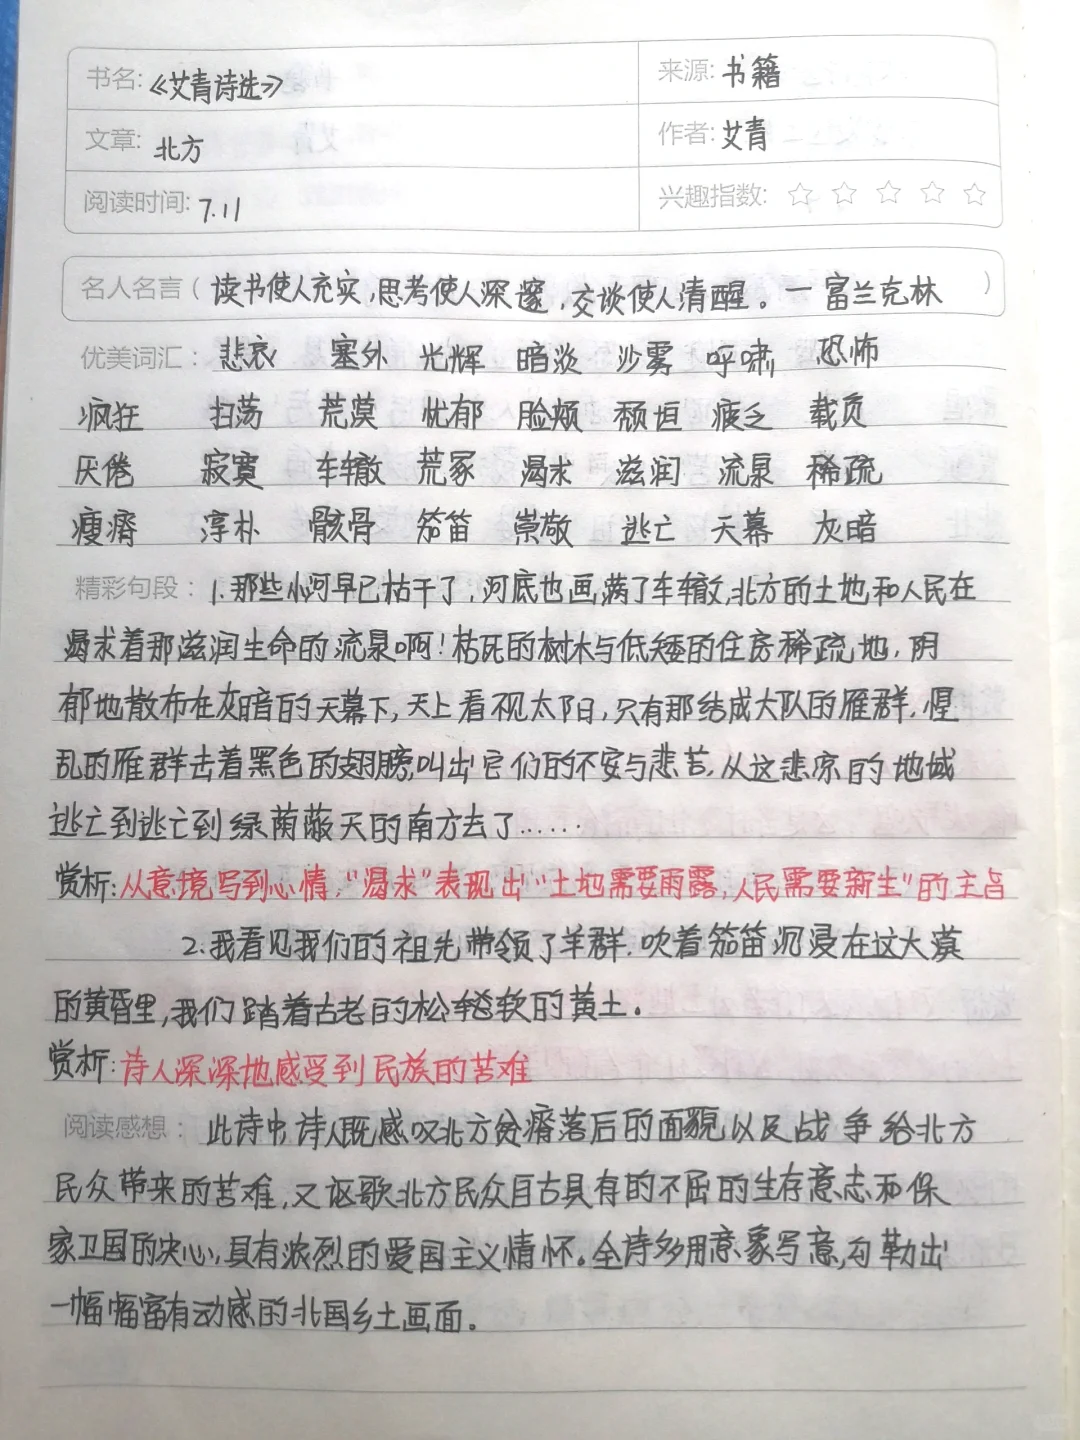 书名: 《艾青诗选》 来源: 书籍
文章: 北方 作者: 艾青
阅读时间: 7.11 兴趣指数: ☆ ☆ ☆ ☆ ☆
名人名言 ( 读书使人充实,思考使人深邃,交谈使人清醒。一富兰克林 )
优美词汇: 悲哀 塞外 光辉 暗淡 沙雾 呼啸 恐怖
疯狂 扫荡 荒漠 忧郁 脸颊 颓垣 疲乏 载负
厌倦 寂寞 车辙 荒冢 渴求 滋润 流泉 稀疏
瘦瘠 淳朴 骸骨 笳笛 崇敬 逃亡 天幕 灰暗
精彩句段: 1.那些小河早已枯干了,河底也画满了车辙,北方的土地和人民在
渴求着那滋润生命的流泉啊!枯死的树木与低矮的住房稀疏地,阴
郁地散布在灰暗的天幕下,天上看不见太阳,只有那结成大队的雁群,惶
乱的雁群击着黑色的翅膀,叫出它们的不安与悲苦,从这悲凉的地域
逃亡到逃亡到绿荫蔽天的南方去了……
赏析:从意境写到心情,“渴求”表现出“土地需要雨露,人民需要新生”的主旨
2.我看见我们的祖先带领了羊群,吹着笳笛沉浸在这大漠
的黄昏里,我们踏着古老的松软的黄土.
赏析:诗人深深地感受到民族的苦难
阅读感想: 此诗中,诗人既感叹北方贫瘠落后的面貌以及战争给北方
民众带来的苦难,又讴歌北方民众自古具有的不屈的生存意志和保
家卫国的决心,具有浓烈的爱国主义情怀。全诗多用意象写意,勾勒出
一幅幅富有动感的北国乡土画面。